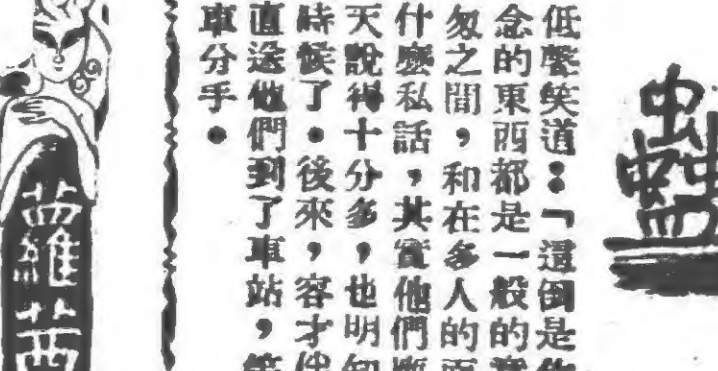 蠱
低聲笑道：「還倒是
念的東西都是一般的
匆之間，和在多人的面
什麼私話，其實他們
天說得十分多，也明知
時候了。後來，容才伴
直送他們到了車站，等
車分手。
蘿茜